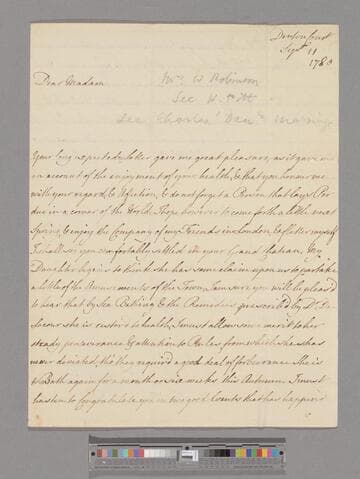 Denton Court
Sept 11
1780
Dear Madam
Mrs W Robinson
See H
See Charles' Marriage
Your long expected letter gave me great pleasure, as it gave me
an account of the enjoyment of your health, & that you honor me
with your regard, & affection, & do not forget a Person that lays Per
due in a corner of the World. I hope however to come forth a little next
Spring, & enjoy the Company of my Friends in London, & flatter myself
I shall see you comfortably settled in your grand Chateau. My
Daughter begins to think she has some claim upon us to partake
a little of the Amusements of the Town, I am sure you will be pleas'd
to hear that by Sea Bathing, & the Remedies prescribed by Dr
she is restor'd to health, I must allow some merit to her
steady perseverance, & attention to Rules, from which she has
never deviated, tho they requir'd a good deal of forbearance. She is
to Bath again for a month or six weeks this Autumn. I must
hasten to Congratulate you on two good Events that has happen'd